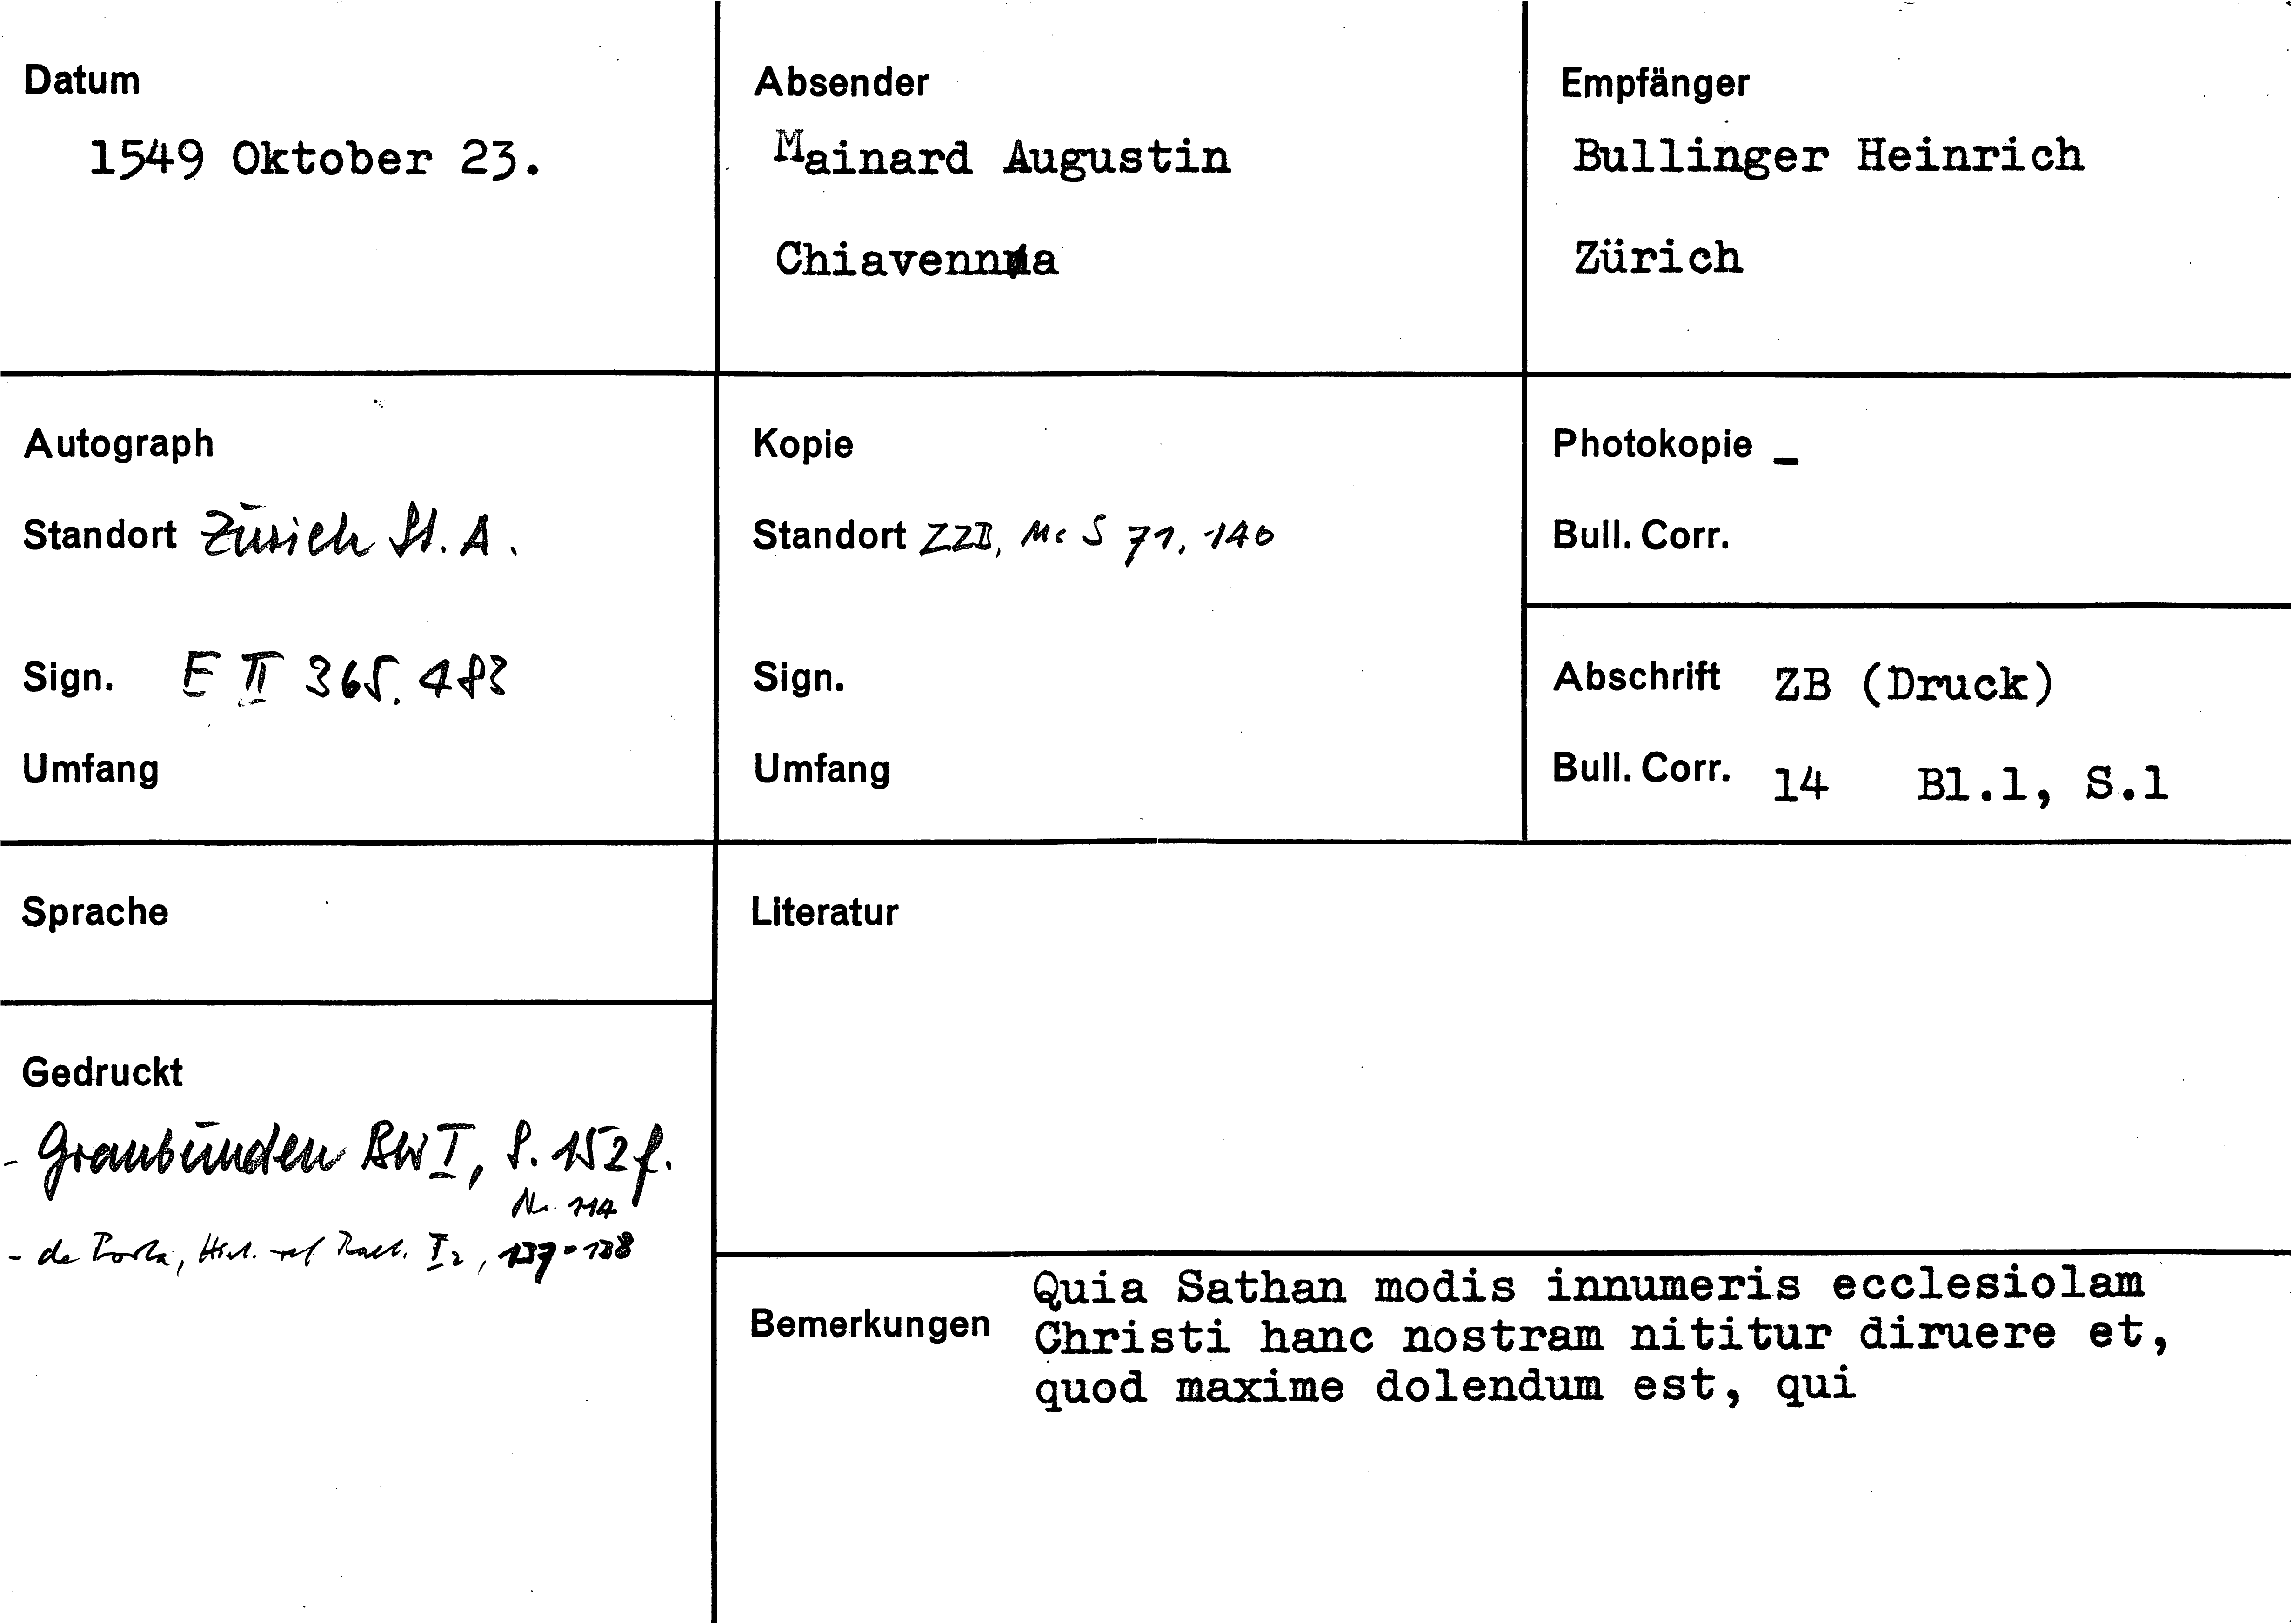 Datum
1549 Oktober 23.
Absender
Mainard Augustin
Chiavenna
Empfänger
Bullinger Heinrich
Zürich
Autograph
Standort Zürich St. A.
Sign. E II 365. 483
Umfang
Kopie
Standort ZZB, Mc S 71, 140
Sign.
Umfang
Photokopie -
Bull. Corr.
Abschrift ZB (Druck)
Bull. Corr. 14 Bl.1, S.1
Sprache
Gedruckt
- Graubünden BW I, S. 152 f.
Nr. 114
- de Porta, Hist. ref Raet. I 2, 137-138
Literatur
Bemerkungen
Quia Sathan modis innumeris ecclesiolam
Christi hanc nostram nititur diruere et,
quod maxime dolendum est, qui